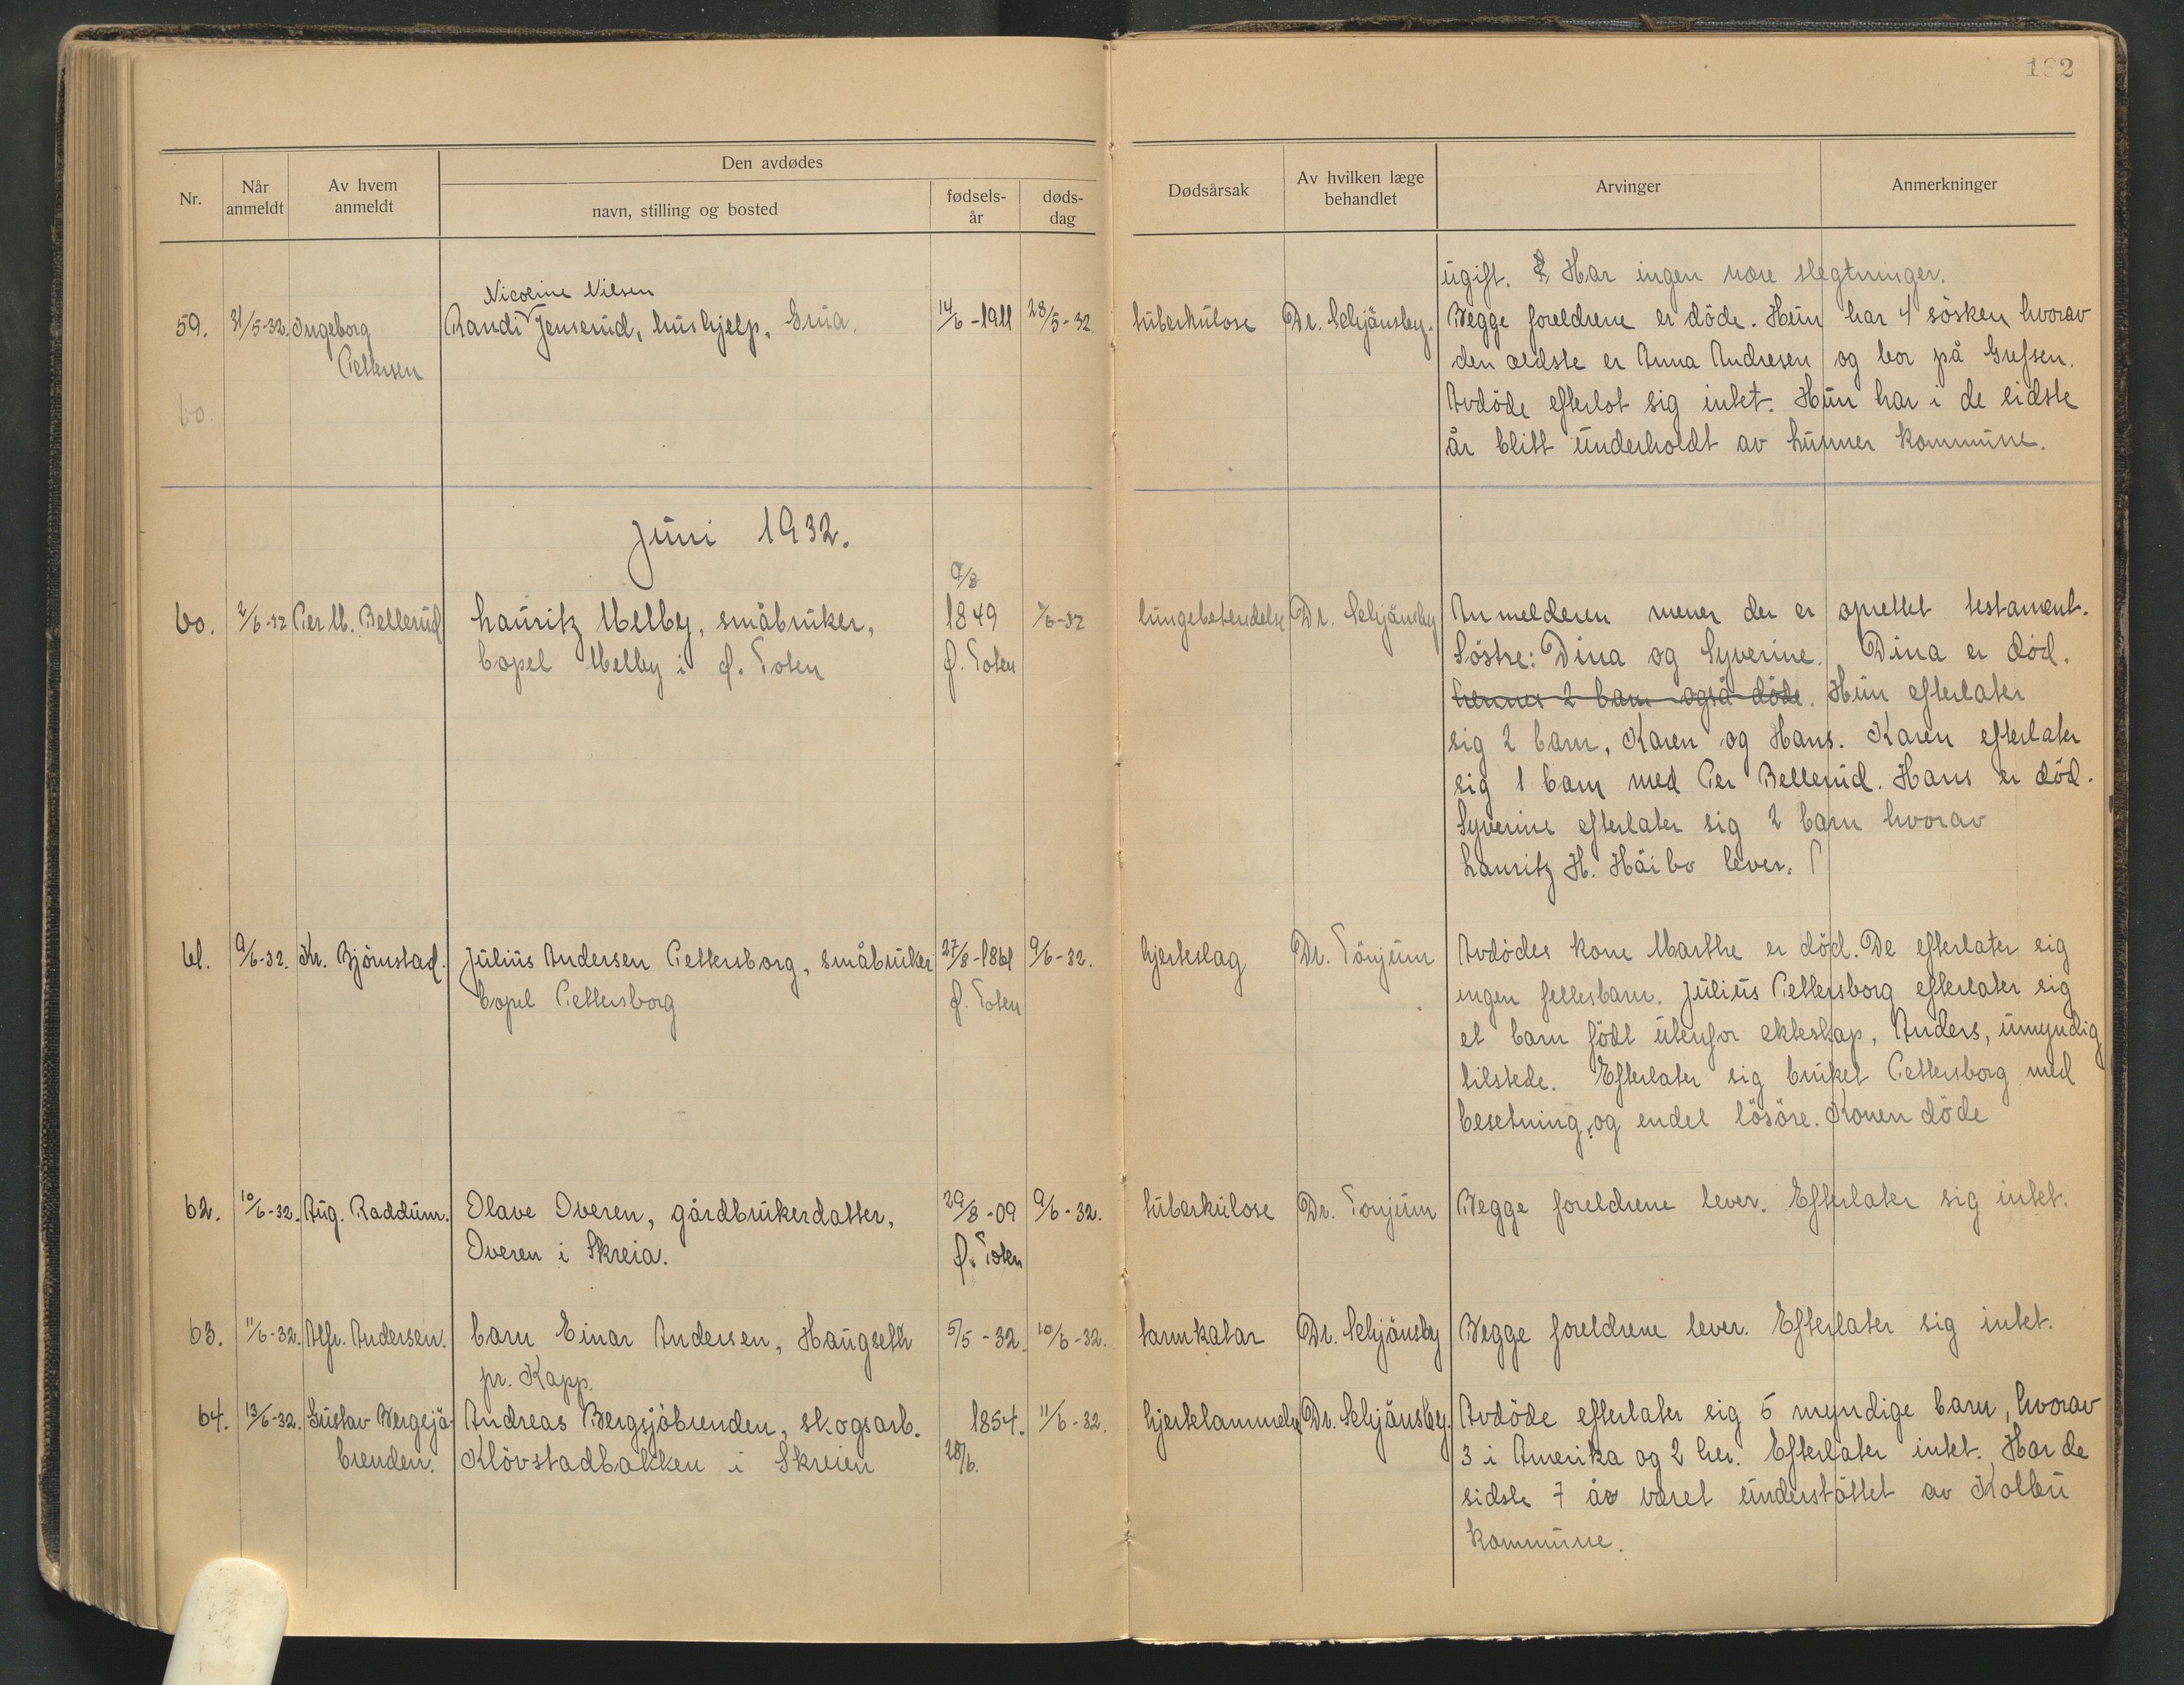 132
Den avdødes
Nr.
Når anmeldt
Av hvem anmeldt
navn, stilling og bosted
fødsels-år
døds-dag
Dødsårsak
Av hvilken læge behandlet
Arvinger
Anmerkninger
59. 31/5-32. Ingeborg Pettersen
Nicoline Nilsen
Randi Jenserud, hushjelp, Grua. 14/6-1911 28/5-32
tuberkulose Dr. Schjänsby.
ugift. Har ingen nære slegtninger.
Begge foreldrene er döde. Hun har 4 sösken hvorav
den ældste er Anna Andresen og bor på Grefsen.
Avdöde efterlot sig intet. Hun har i de sidste
år blitt underholdt av Lunner kommune.
60.
Juni 1932.
60. 2/6-32 Per M. Bellerud
Lauritz Melby, småbruker,
bopel Melby i Ö. Toten
9/8
1849
Ö. Toten
1/6-32
lungebetendelse Dr. Schjänsby
Anmelderen mener der er oprettet testament.
Söstre: Dina og Syverine. Dina er död.
hennes 2 barn også döde. Hun efterlater
sig 2 barn, Karen og Hans. Karen efterlater
sig 1 barn med Per Bellerud. Hans er död.
Syverine efterlater sig 2 barn hvorav
Lauritz H. Håibo lever.
61. 9/6-32. Kr. Björnstad.
Julius Andersen Pettersborg, småbruker
bopel Pettersborg
27/8-1861
Ö. Toten
9/6-32.
hjerteslag Dr. Tönjum
Avdödes kone Marthe er död. De efterlater sig
ingen fellesbarn. Julius Pettersborg efterlater sig
et barn födt utenfor ekteskap, Anders, umyndig
tilstede. Efterlater sig bruket Pettersborg med
besetning, og endel lösöre. Konen döde
62. 10/6-32. Aug. Raddum.
Olave Overen, gårdbrukerdatter,
Overen i Skreia.
29/8-09
Ö. Toten
9/6-32.
tuberkulose Dr. Tonjum
Begge foreldrene lever. Efterlater sig intet.
63. 11/6-32. Alfr. Andersen.
barn Einar Andersen, Haugseth
pr. Kapp.
5/5-32. 10/6-32.
tarmkatar Dr. Schjänsby
Begge foreldrene lever. Efterlater sig intet.
64. 13/6-32. Gustav Bergsjö-
brenden.
Andreas Bergsjöbrenden, skogsarb.
Klövstadbakken i Skreien
1854.
28/6.
11/6-32.
hjertelammelse Dr. Schjänsby.
Avdöde efterlater sig 5 myndige barn, hvorav
3 i Amerika og 2 her. Efterlater intet. Har de
sidste 7 år været understöttet av Kolbu
kommune.